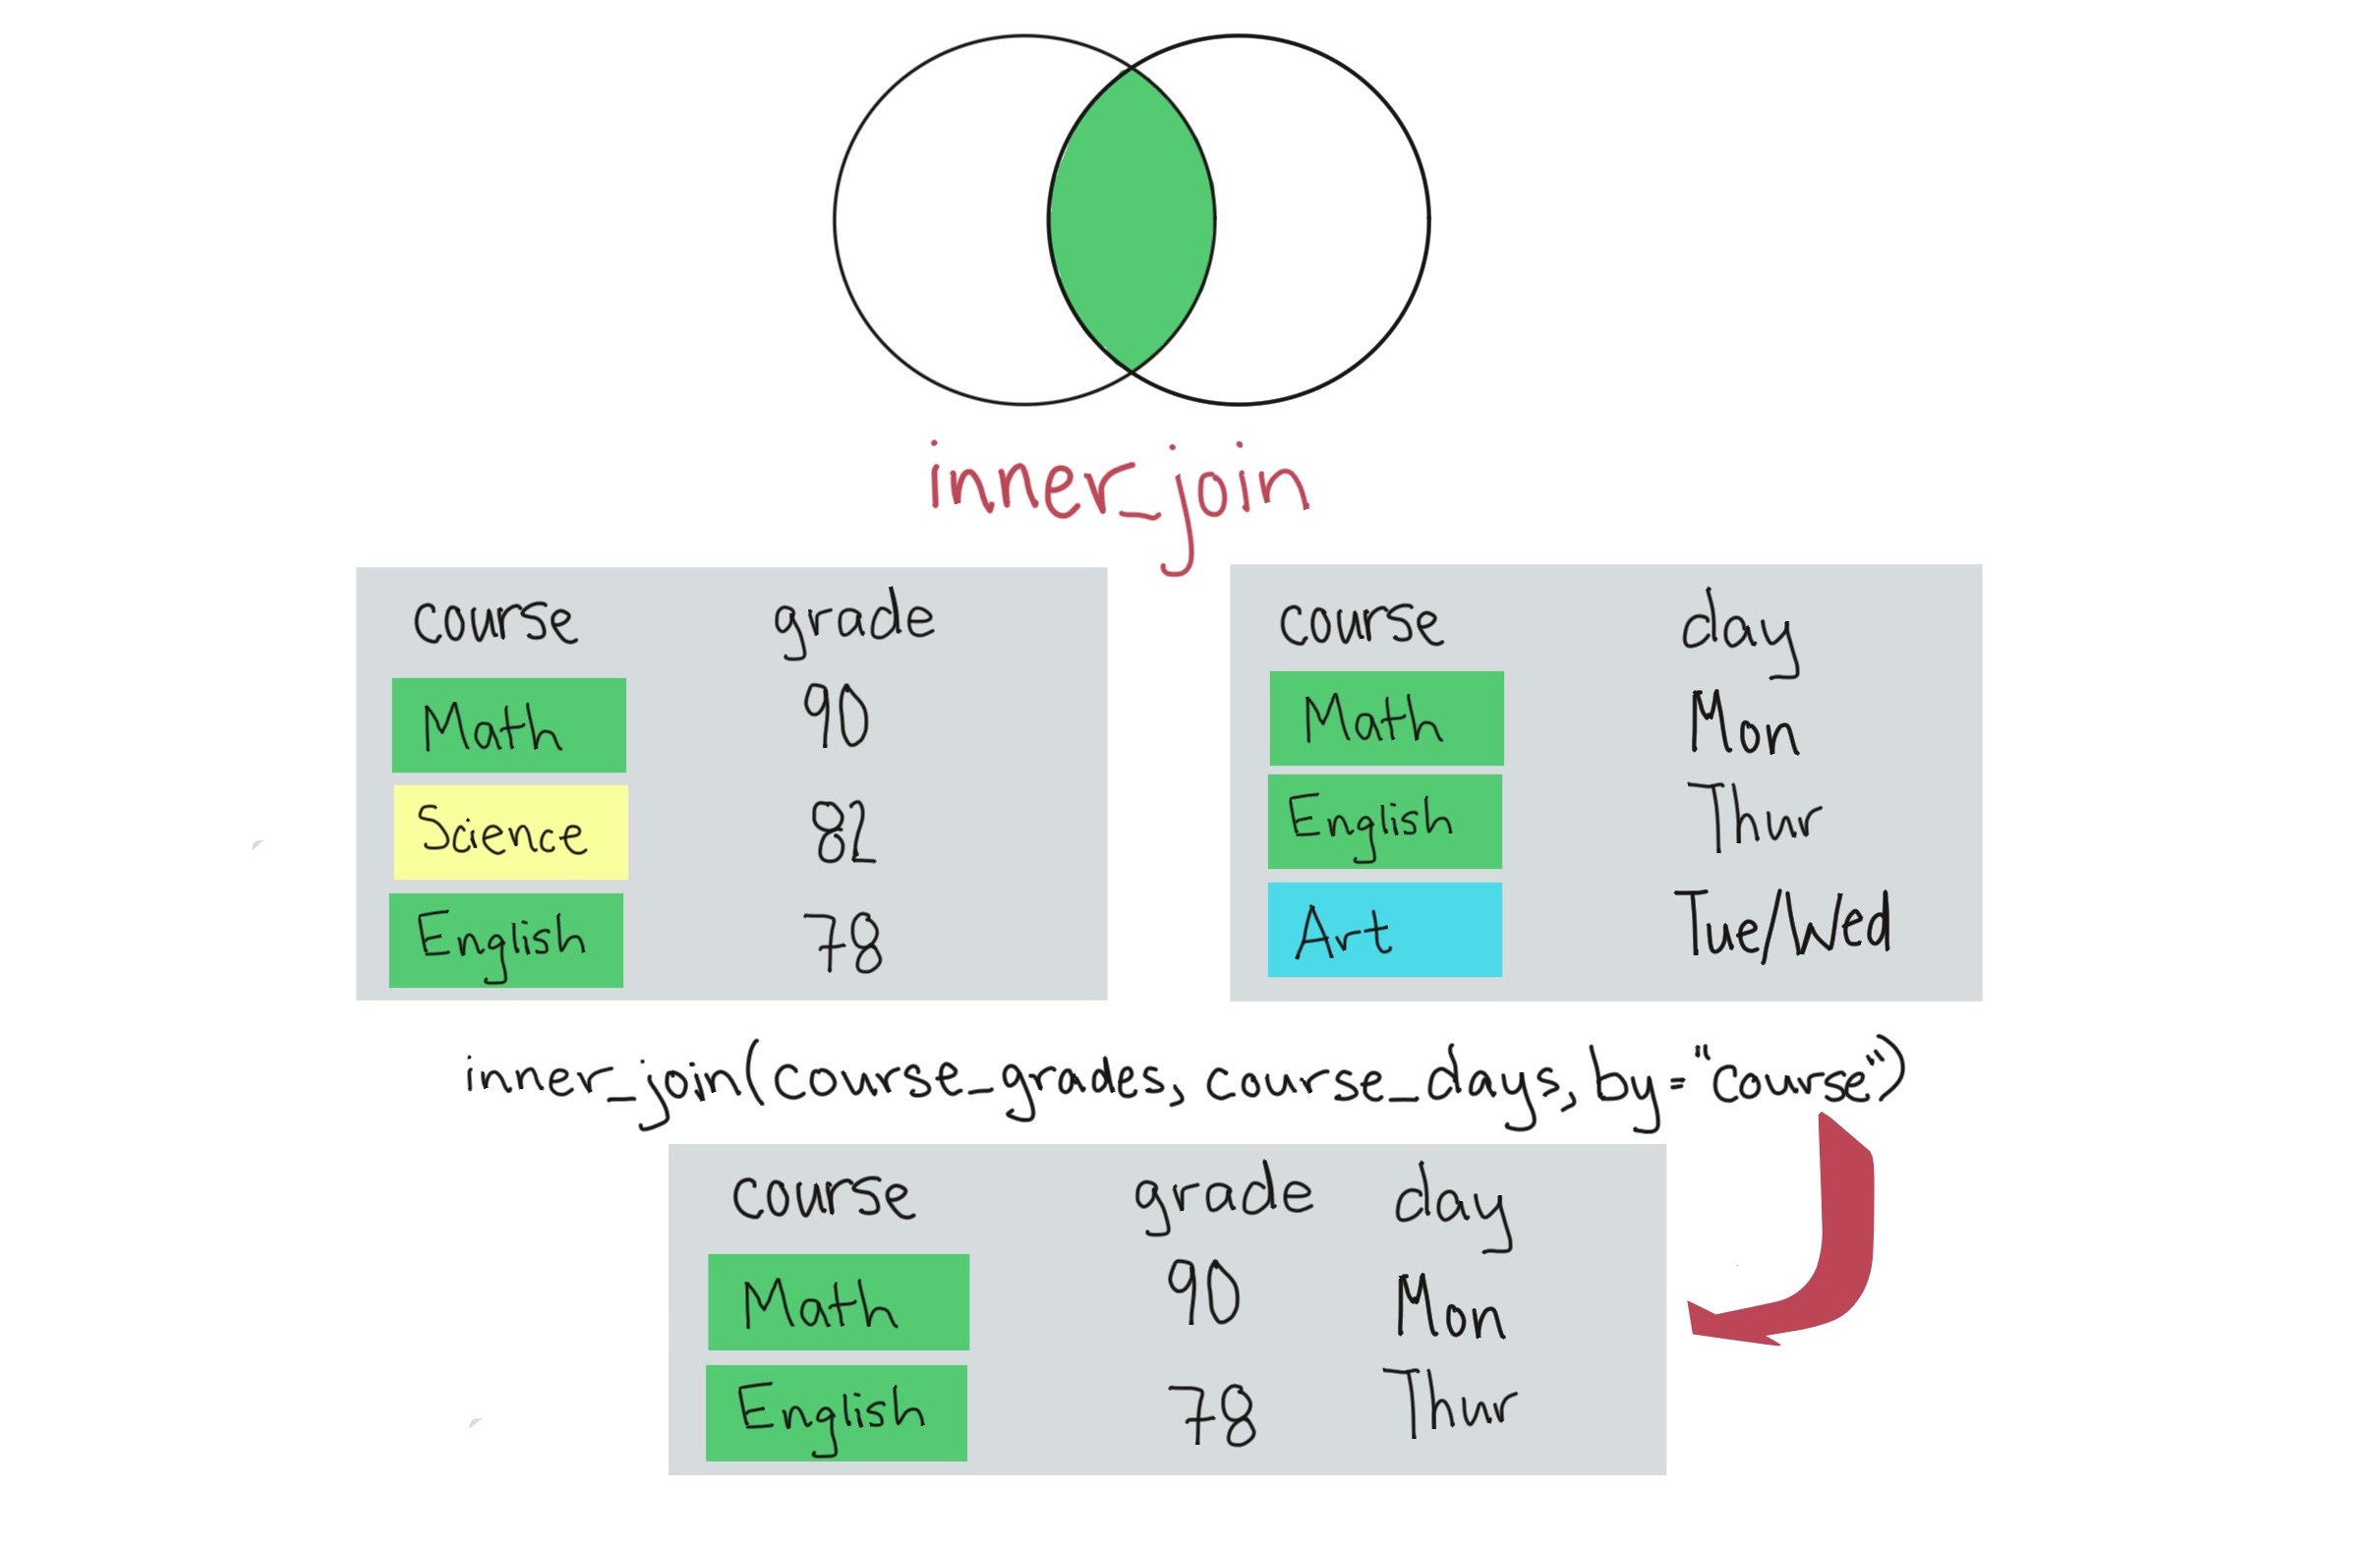 inner_join
course grade
Math 90
Science 82
English 78
course day
Math Mon
English Thur
Art Tue/Wed
inner_join(course_grades, course_days, by="course")
course grade day
Math 90 Mon
English 78 Thur